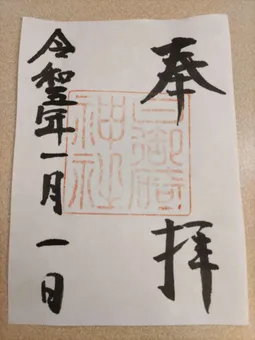 奉拝
日御碕
神社
令和五年一月一日